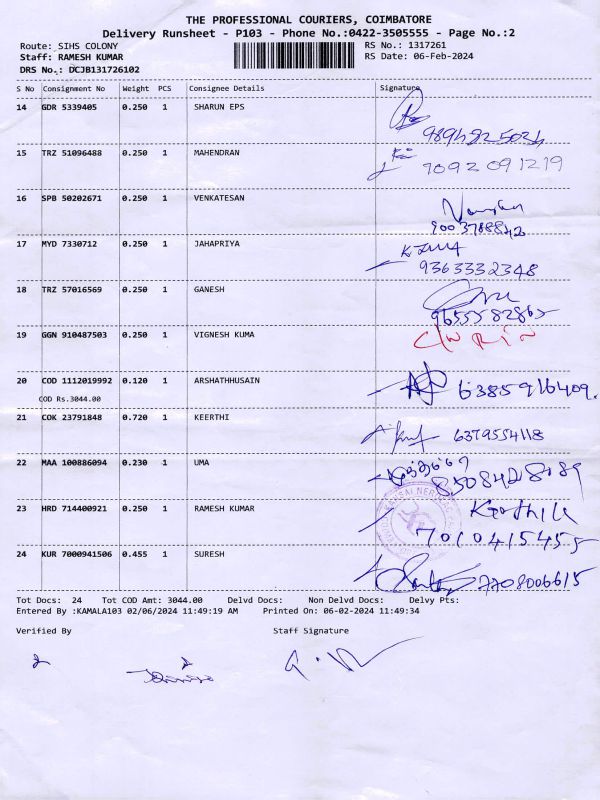 THE PROFESSIONAL COURIERS, COIMBATORE
Delivery Runsheet - P103 - Phone No.:0422-3505555 - Page No.:2
Route: SIHS COLONY RS No.: 1317261
Staff: RAMESH KUMAR RS Date: 06-Feb-2024
DRS No.: DCJB131726102
S No Consignment No Weight PCS Consignee Details Signature
14 GDR 5339405 0.250 1 SHARUN EPS
15 TRZ 51096488 0.250 1 MAHENDRAN
7092091219
16 SPB 50202671 0.250 1 VENKATESAN
9003788842
17 MYD 7330712 0.250 1 JAHAPRIYA
9363332348
18 TRZ 57016569 0.250 1 GANESH
9655582865
19 GGN 910487503 0.250 1 VIGNESH KUMA
20 COD 1112019992 0.120 1 ARSHATHHUSAIN 6385916409.
COD Rs.3044.00
21 COK 23791848 0.720 1 KEERTHI 6379554118
22 MAA 100886094 0.230 1 UMA
8508428189
23 HRD 714400921 0.250 1 RAMESH KUMAR
7010415455
24 KUR 7000941506 0.455 1 SURESH
7708006615
Tot Docs: 24 Tot COD Amt: 3044.00 Delvd Docs: Non Delvd Docs: Delvy Pts:
Entered By :KAMALA103 02/06/2024 11:49:19 AM Printed On: 06-02-2024 11:49:34
Verified By Staff Signature